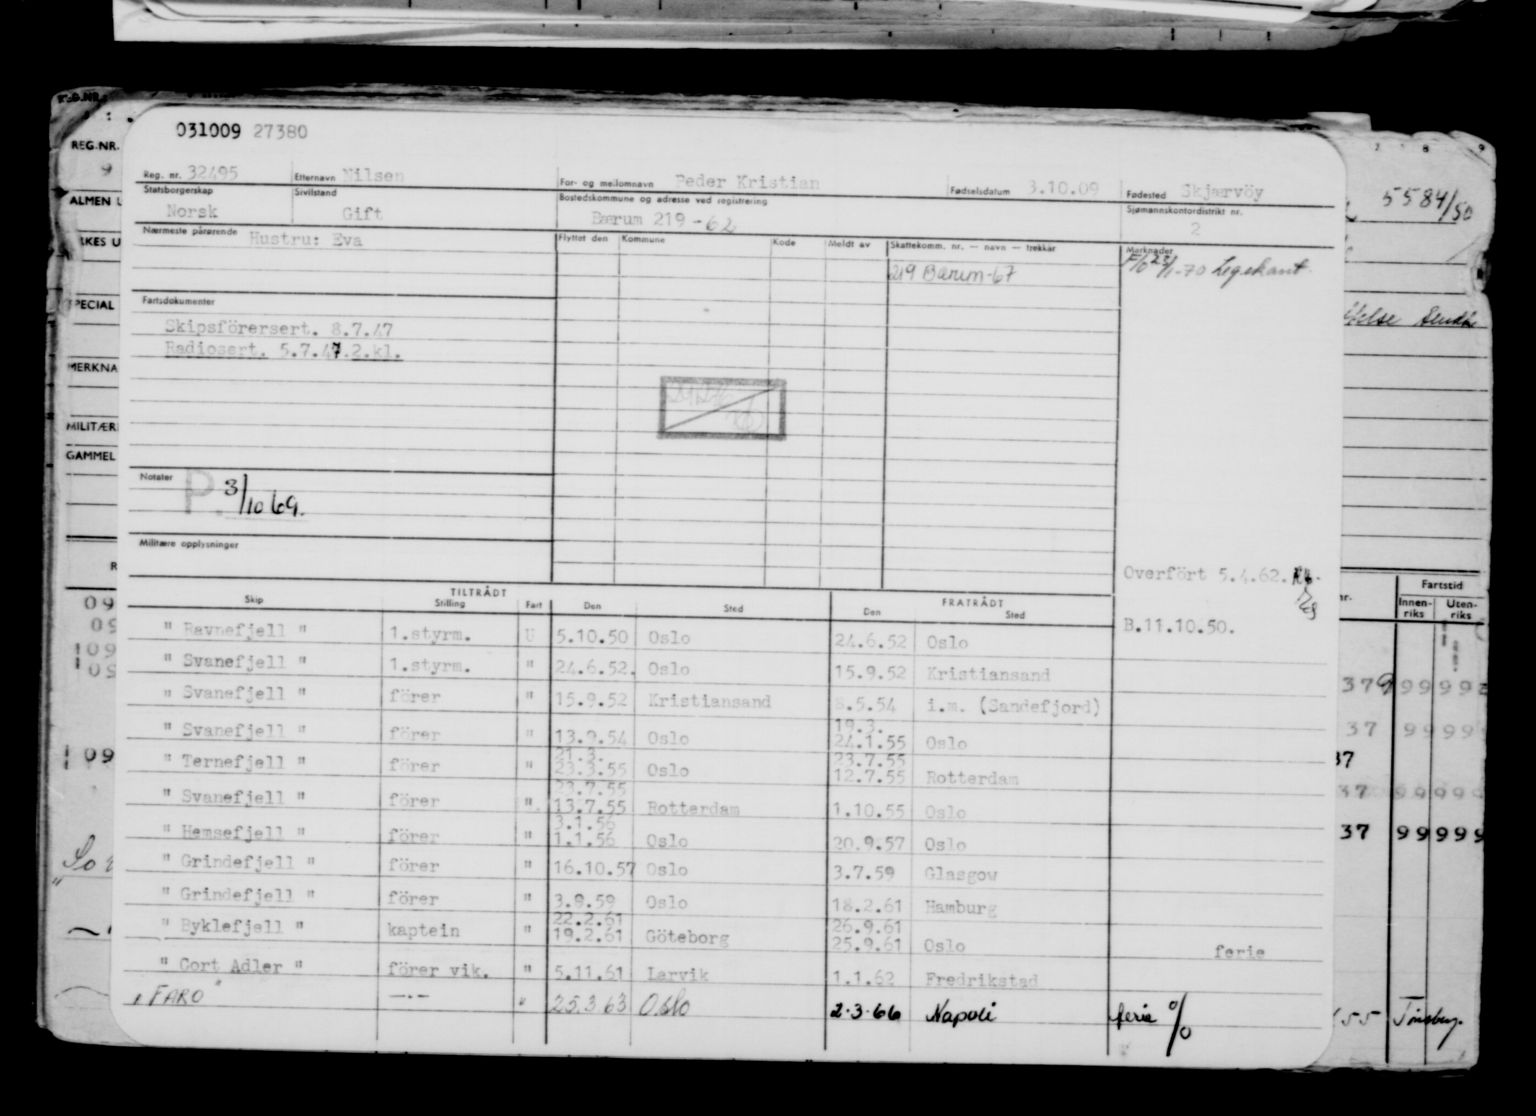 REG.NR.
REG.NR.
9
ALMEN U
RKES U
SPECIAL
MERKNA
MILITÆR
GAMMEL
R
09
09
109
109
109
031009 27380
Reg. nr. 32495 Etternavn Nilsen For- og mellomnavn Peder Kristian Fødselsdatum 3.10.09 Fødested Skjærvöy
Statsborgerskap Sivilstand Bostedskommune og adresse ved registrering Sjømannskontordistrikt nr.
Norsk Gift Bærum 219 -62 2
Nærmeste pårørende Hustru: Eva Flyttet den Kommune Kode Meldt av Skattekomm. nr. — navn — trekkår Merknader
219 Bærum-67 -70 Legekont.
Fartsdokumenter
Skipsförersert. 8.7.47
Radiosert. 5.7.47.2.kl.
Notater P. 3/10 69.
Militære opplysninger
Overfört 5.4.62.
B.11.10.50.
TILTRÅDT FRATRÅDT
Skip Stilling Fart Den Sted Den Sted
" Ravnefjell " 1.styrm. U 5.10.50 Oslo 24.6.52 Oslo
" Svanefjell " 1.styrm. " 24.6.52. Oslo 15.9.52 Kristiansand
" Svanefjell " förer " 15.9.52 Kristiansand 8.5.54 i.m. (Sandefjord)
19.3.
" Svanefjell " förer " 13.9.54 Oslo 24.1.55 Oslo
21.3. 23.7.55
" Ternefjell " förer " 23.3.55 Oslo 12.7.55 Rotterdam
23.7.55
" Svanefjell " förer ". 13.7.55 Rotterdam 1.10.55 Oslo
3.1.56
" Hemsefjell " förer " 1.1.56 Oslo 20.9.57 Oslo
" Grindefjell " förer " 16.10.57 Oslo 3.7.59 Glasgow
" Grindefjell " förer " 3.9.59 Oslo 18.2.61 Hamburg
22.2.61 26.9.61
" Byklefjell " kaptein " 19.2.61 Göteborg 25.9.61 Oslo ferie
" Cort Adler " förer vik. " 5.11.61 Larvik 1.1.62 Fredrikstad
" FARO " —.— " 25.3 63 Oslo 2.3.66 Napoli ferie %
5584/50
Helse
nr. Fartstid
Innen-riks Uten-riks
379 99 99
37 99 99
37
37 99 999
37 99 999
55 Tønsberg.